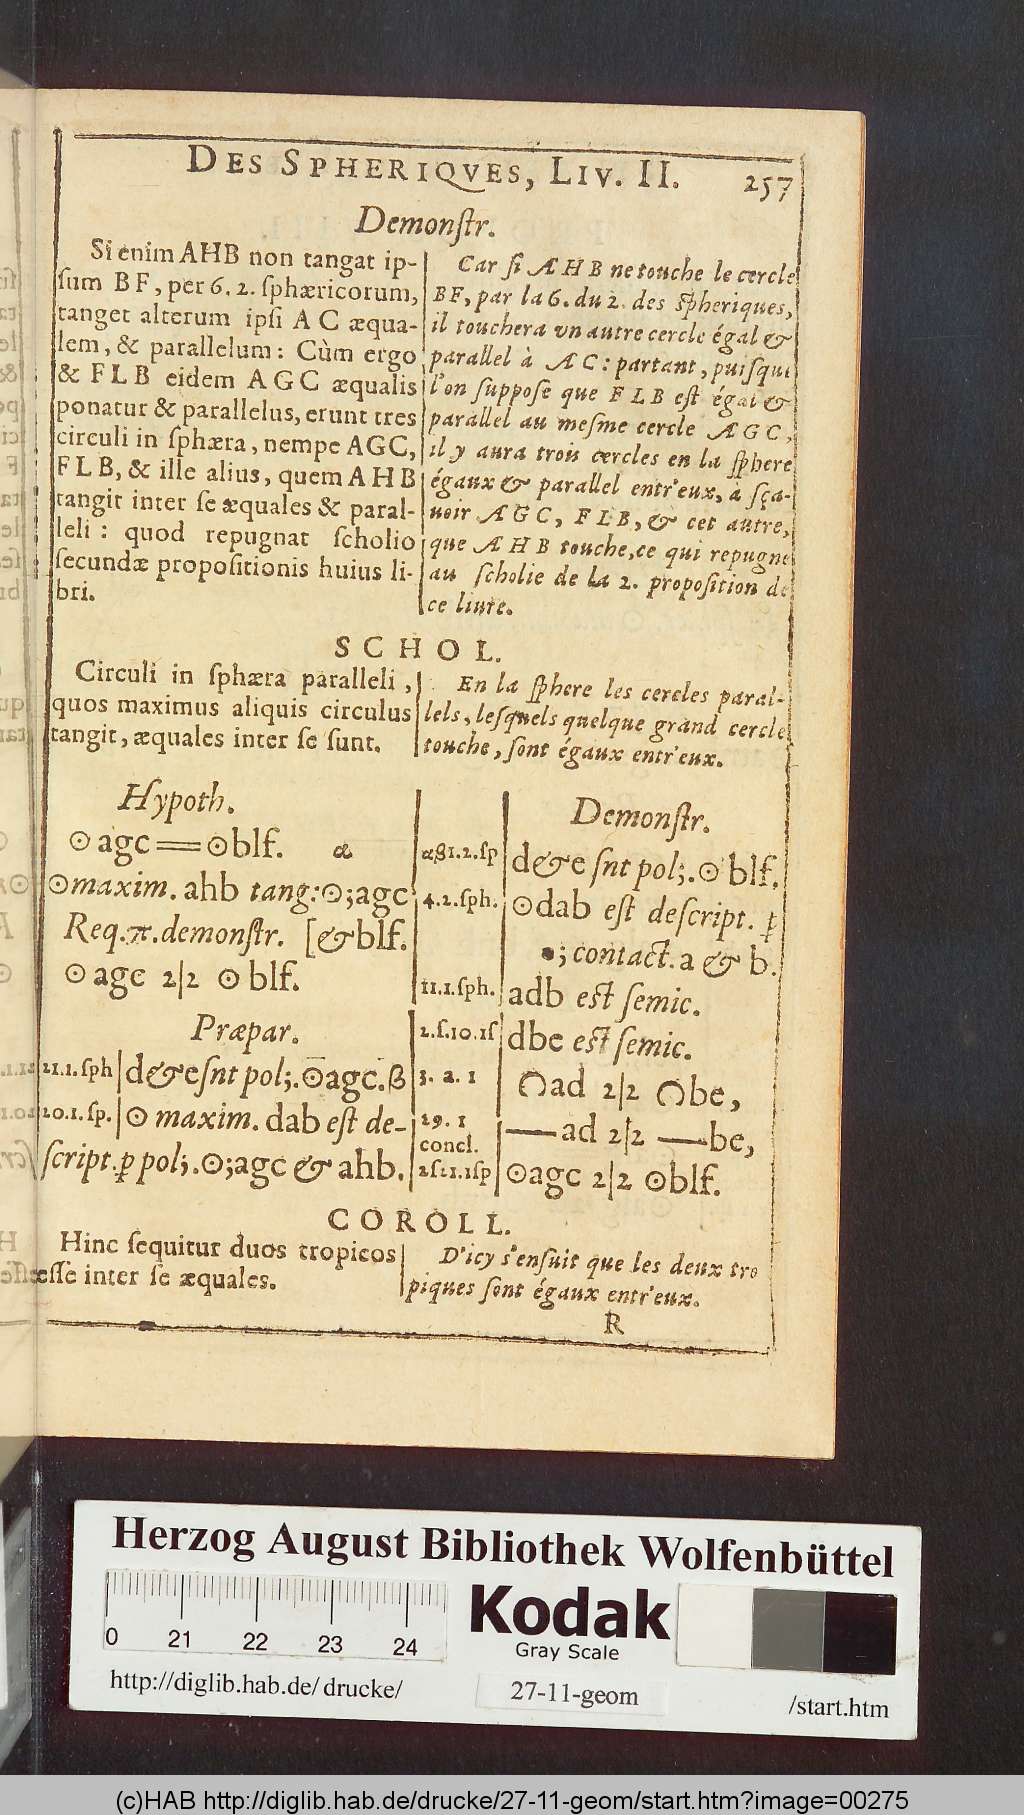 DES SPHERIQVES, LIV. II. 257
Demonſtr.
Si enim AHB non tangat ip-
ſum BF, per 6. 2. ſphæricorum,
tanget alterum ipſi AC æqua-
lem, & parallelum: Cùm ergo
& FLB eidem AGC æqualis
ponatur & parallelus, erunt tres
circuli in ſphæra, nempe AGC,
FLB, & ille alius, quem AHB
tangit inter ſe æquales & paral-
leli: quod repugnat ſcholio
ſecundæ propoſitionis huius li-
bri.
Car ſi AHB ne touche le cercle
BF, par la 6. du 2. des ſpheriques,
il touchera vn autre cercle égal &
parallel à AC: partant, puiſque
l'on ſuppoſe que FLB eſt égal &
parallel au meſme cercle AGC,
il y aura trois cercles en la ſphere
égaux & parallel entr'eux, à ſça-
uoir AGC, FLB, & cet autre,
que AHB touche, ce qui repugne
au ſcholie de la 2. propoſition de
ce liure.
SCHOL.
Circuli in ſphæra paralleli,
quos maximus aliquis circulus
tangit, æquales inter ſe ſunt.
En la ſphere les cercles paral-
lels, leſquels quelque grand cercle
touche, ſont égaux entr'eux.
Hypoth.
⊙agc═⊙blf. α
⊙maxim. ahb tang:⊙;agc
Req.π.demonſtr. [&blf.
⊙agc 2|2 ⊙blf.
Præpar.
21.1.ſph | d&e ſnt pol;.⊙agc.β
20.1.ſp. | ⊙ maxim. dab eſt de-
ſcript. p pol;.⊙;agc & ahb.
αβ1.2.ſp
4.2.ſph.
11.1.ſph.
2.ſ.10.1ſ
3. a. 1
29. 1
concl.
2ſ21.1ſp
Demonſtr.
d&e ſnt pol;.⊙blf.
⊙dab eſt deſcript. p
•; contact. a & b.
adb eſt ſemic.
dbe eſt ſemic.
∩ad 2|2 ∩be,
—ad 2|2 —be,
⊙agc 2|2 ⊙blf.
COROLL.
Hinc ſequitur duos tropicos
eſſe inter ſe æquales.
D'icy s'enſuit que les deux tro
piques ſont égaux entr'eux.
R
Herzog August Bibliothek Wolfenbüttel
0 21 22 23 24
Kodak
Gray Scale
http://diglib.hab.de/drucke/ 27-11-geom /start.htm
(c)HAB http://diglib.hab.de/drucke/27-11-geom/start.htm?image=00275